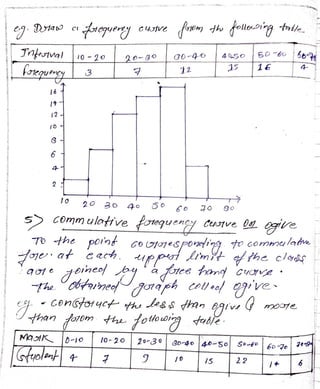 eg. Draw a frequency curve from the following table.
Interval 10-20 20-30 30-40 40-50 50-60 60-70
frequency 3 7 12 15 16 4
16
14
12
10
8
6
4
2
10 20 30 40 50 60 70 80
5) Commulative frequency curve or ogive
To the point corresponding to commulative
fre. at each. upper limit of the class
are joined by a free hand curve.
The obtained graph called ogive.
eg. - Construct the less than ogive & more
than from the following table.
Mark 0-10 10-20 20-30 30-40 40-50 50-60 60-70
Student 4 7 9 10 15 22 6